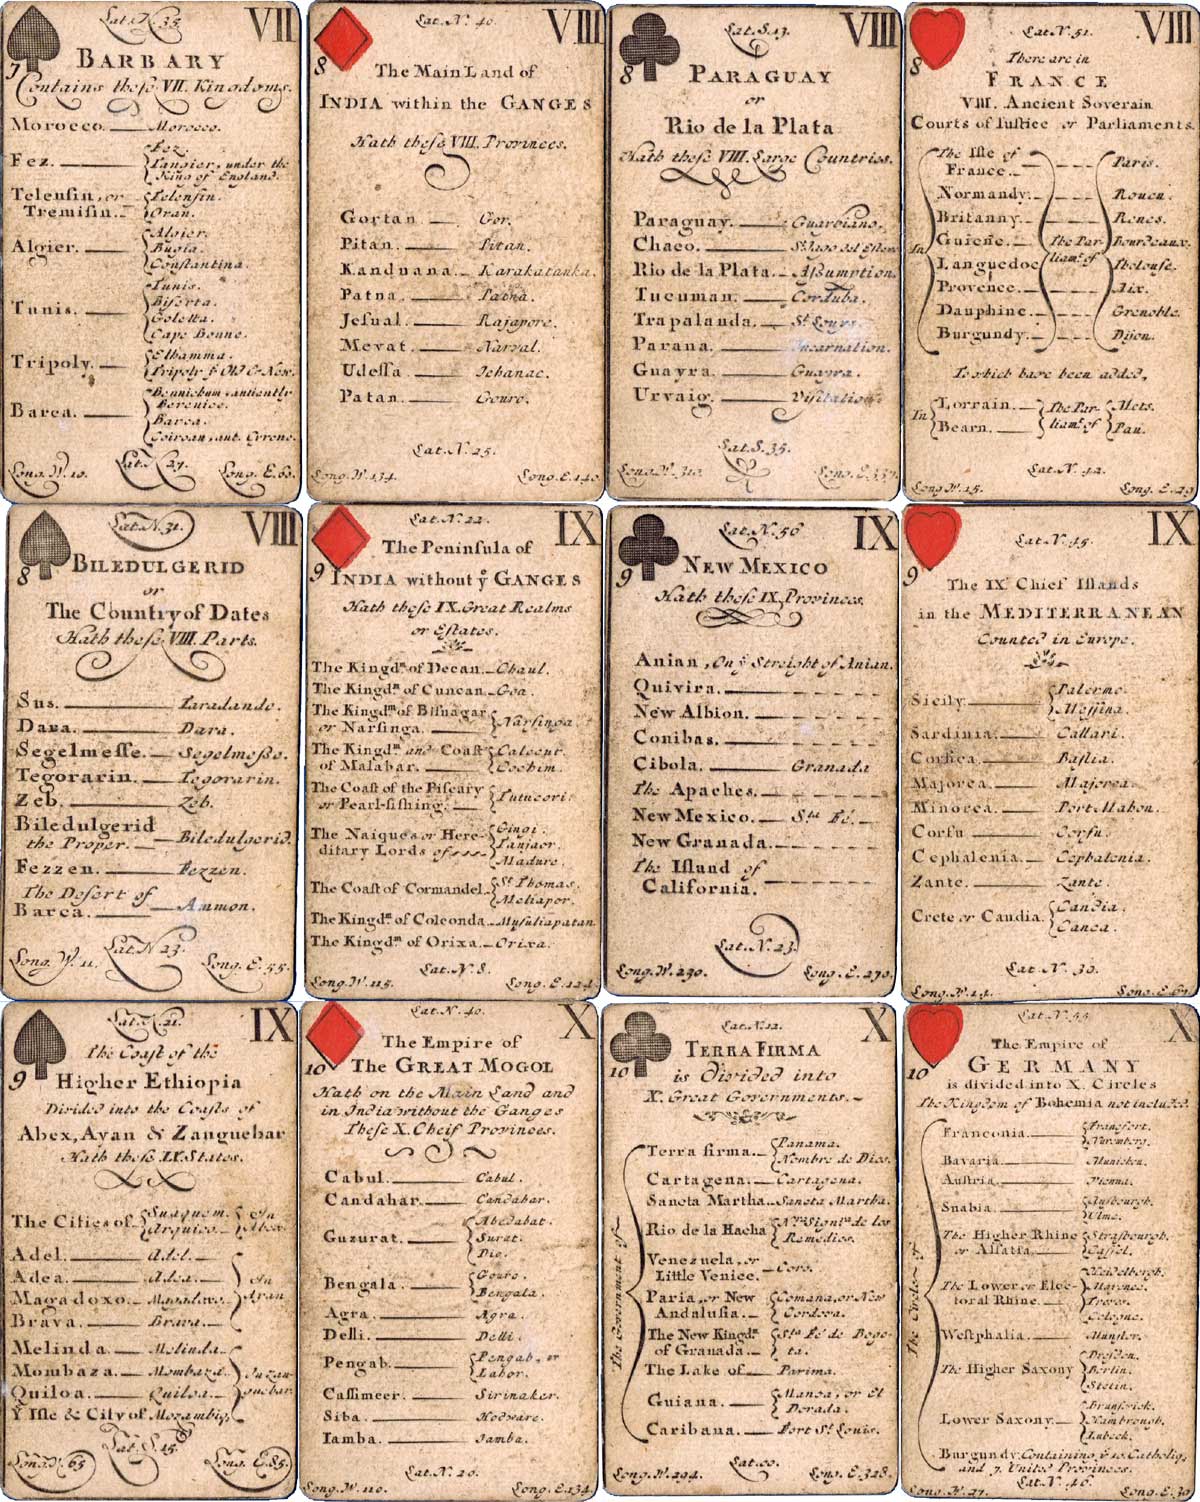 Lat. N. 35. VII
7
BARBARY
Contains these VII. Kingdoms.
Morocco. Morocco.
Fez. Fez.
Tangier, under the
King of England.
Telensin, or Telensin.
Tremisin. Oran.
Algier. Algier.
Bugia.
Constantina.
Tunis. Tunis.
Biserta.
Goletta.
Cape Bonne.
Tripoly. Elhamma.
Tripoly ye Old & New.
Barca. Bernichum, antiently
Berenice.
Barca.
Coirvan, ant. Cyrene.
Long. W. 10. Lat. N. 27. Long. E. 60.
Lat. N. 40. VIII
8
The Main Land of
INDIA within the GANGES
Hath these VIII. Provinces.
Gortan Gor.
Pitan. Pitan.
Kanduana. Karakatanka.
Patna. Patna.
Jesual. Rajapore.
Mevat. Narval.
Udessa. Jehanac.
Patan. Gouro.
Lat. N. 25.
Long. W. 134. Long. E. 140.
Lat. S. 13. VIII
8
PARAGUAY
or
Rio de la Plata
Hath these VIII. Large Countries.
Paraguay. Guarbiano.
Chaco. St. Jago del Estero
Rio de la Plata. Assumption.
Tucuman. Corduba.
Trapalanda. St. Louys.
Parana. Incarnation.
Guayra. Guayra.
Urvaig. Visitation.
Lat. S. 35.
Long. W. 310. Long. E. 337.
Lat. N. 51. VIII
8
There are in
FRANCE
VIII. Ancient Soverain
Courts of Justice or Parliaments.
In
The Isle of
France. Paris.
Normandy. Rouen.
Britanny. Renes.
Guiene. The Par- Bourdeaux.
Languedoc liamt. of Tholouse.
Provence. Aix.
Dauphine. Grenoble.
Burgundy. Dijon.
To which have been added,
In Lorrain. The Par- Mets.
Bearn. liamt. of Pau.
Lat. N. 42.
Long. W. 15. Long. E. 29
Lat. N. 31. VIII
8
BILEDULGERID
or
The Country of Dates
Hath these VIII. Parts.
Sus. Taradando.
Dara. Dara.
Segelmesse. Segelmesse.
Tegorarin. Tegorarin.
Zeb. Zeb.
Biledulgerid
the Proper. Biledulgerid.
Fezzen. Fezzen.
The Desert of
Barca. Ammon.
Long. W. 11. Lat. N 23. Long. E. 55.
Lat. N. 22. IX
9
The Peninsula of
INDIA without ye GANGES
Hath these IX. Great Realms
or Estates.
The Kingdm. of Decan. Chaul.
The Kingdm. of Cuncan. Goa.
The Kingdm. of Bisnagar
or Narsinga. Narsinga
The Kingdm. and Coast Calecut.
of Malabar. Cochim.
The Coast of the Piscary
or Pearl-fishing. Tutucori.
The Naiques or Here- Gingi.
ditary Lords of Tanjaor.
Madure.
The Coast of Cormandel. St. Thomas.
Meliapor.
The Kingdm. of Golconda. Musuliapatan
The Kingdm. of Orixa. Orixa.
Lat. N. 8.
Long. W. 115. Long. E. 124.
Lat. N. 56 IX
9
NEW MEXICO
Hath these IX, Provinces.
Anian, On ye Streight of Anian.
Quivira.
New Albion.
Conibas.
Cibola. Granada
The Apaches.
New Mexico. Sta. Fé.
New Granada.
The Island of
California.
Lat. N. 23.
Long. W. 230. Long. E. 270.
Lat. N. 45. IX
9
The IX. Chief Islands
in the MEDITERRANEAN
Counted in Europe.
Sicily Palermo.
Messina.
Sardinia. Callari.
Corsica. Bastia.
Majorca. Majorca.
Minorca. Port Mahon.
Corfu Corfu.
Cephalenia. Cephalenia.
Zante. Zante.
Crete or Candia. Candia.
Canea.
Lat. N. 30.
Long. W. 14. Long. E. 61.
Lat. N. 21. IX
9
The Coast of the
Higher Ethiopia
Divided into the Coasts of
Abex, Ayan & Zanguebar
Hath these IX. States.
The Cities of Suaquem. In
Arquico. Abex.
Adel. Adel.
Adea. Adea. In
Magadoxo. Magadoxo. Ayan
Brava. Brava.
Melinda. Melinda.
Mombaza. Mombaza. In Zan-
Quiloa. Quiloa. guebar
Ye Isle & City of Mozambiq.
Long. W. 65 Lat. S. 15. Long. E. 85.
Lat. N. 40. X
10
The Empire of
The GREAT MOGOL
Hath on the Main Land and
in India without the Ganges
These X. Cheif Provinces.
Cabul. Cabul.
Candahar. Candahar.
Guzurat. Abedabat.
Surat.
Dio.
Bengala. Gouro.
Bengala.
Agra. Agra.
Delli. Delli.
Pengab. Pengab, or
Lahor.
Cassimeer. Sirinaker.
Siba. Hodware.
Iamba. Jamba.
Lat. N. 20.
Long. W. 110. Long. E. 134.
Lat. N. 12. X
10
TERRA FIRMA
is Divided into
X. Great Governments.
The Government of
Terra firma. Panama.
Nombre de Dios.
Cartagena. Cartagena.
Sancta Martha. Sancta Martha.
Rio de la Hacha
Remedios.
Venezuela, or
Little Venice. Coro.
Paria, or New Comana, or New
Andalusia. Cordova.
The New Kingdm. Sta. Fé de Bogo-
of Granada. ta.
The Lake of Parima.
Guiana. Manoa, or El
Dorada.
Caribana. Fort St. Louis.
Lat. 00.
Long. W. 294. Long. E. 328.
Lat. N. 55 X
10
The Empire of
GERMANY
is divided into X. Circles
The Kingdom of Bohemia not included.
The Circles of
Franconia. Francfort.
Nuremberg.
Bavaria. Munichen.
Austria. Vienna.
Suabia. Ausbourgh.
Ulme.
The Higher Rhine Strasbourgh.
or Alsatia. Cassel.
Heidelbergh.
The Lower or Elec- Mayence.
toral Rhine. Treves.
Cologne.
Westphalia. Munster.
Dresden.
The Higher Saxony Berlin.
Stetin.
Brunswick.
Lower Saxony. Hambrough.
Lubeck.
Burgundy. Containing ye 10. Catholiq.
and 7. United Provinces.
Lat. N. 46.
Long. W. 27. Long. E. 39